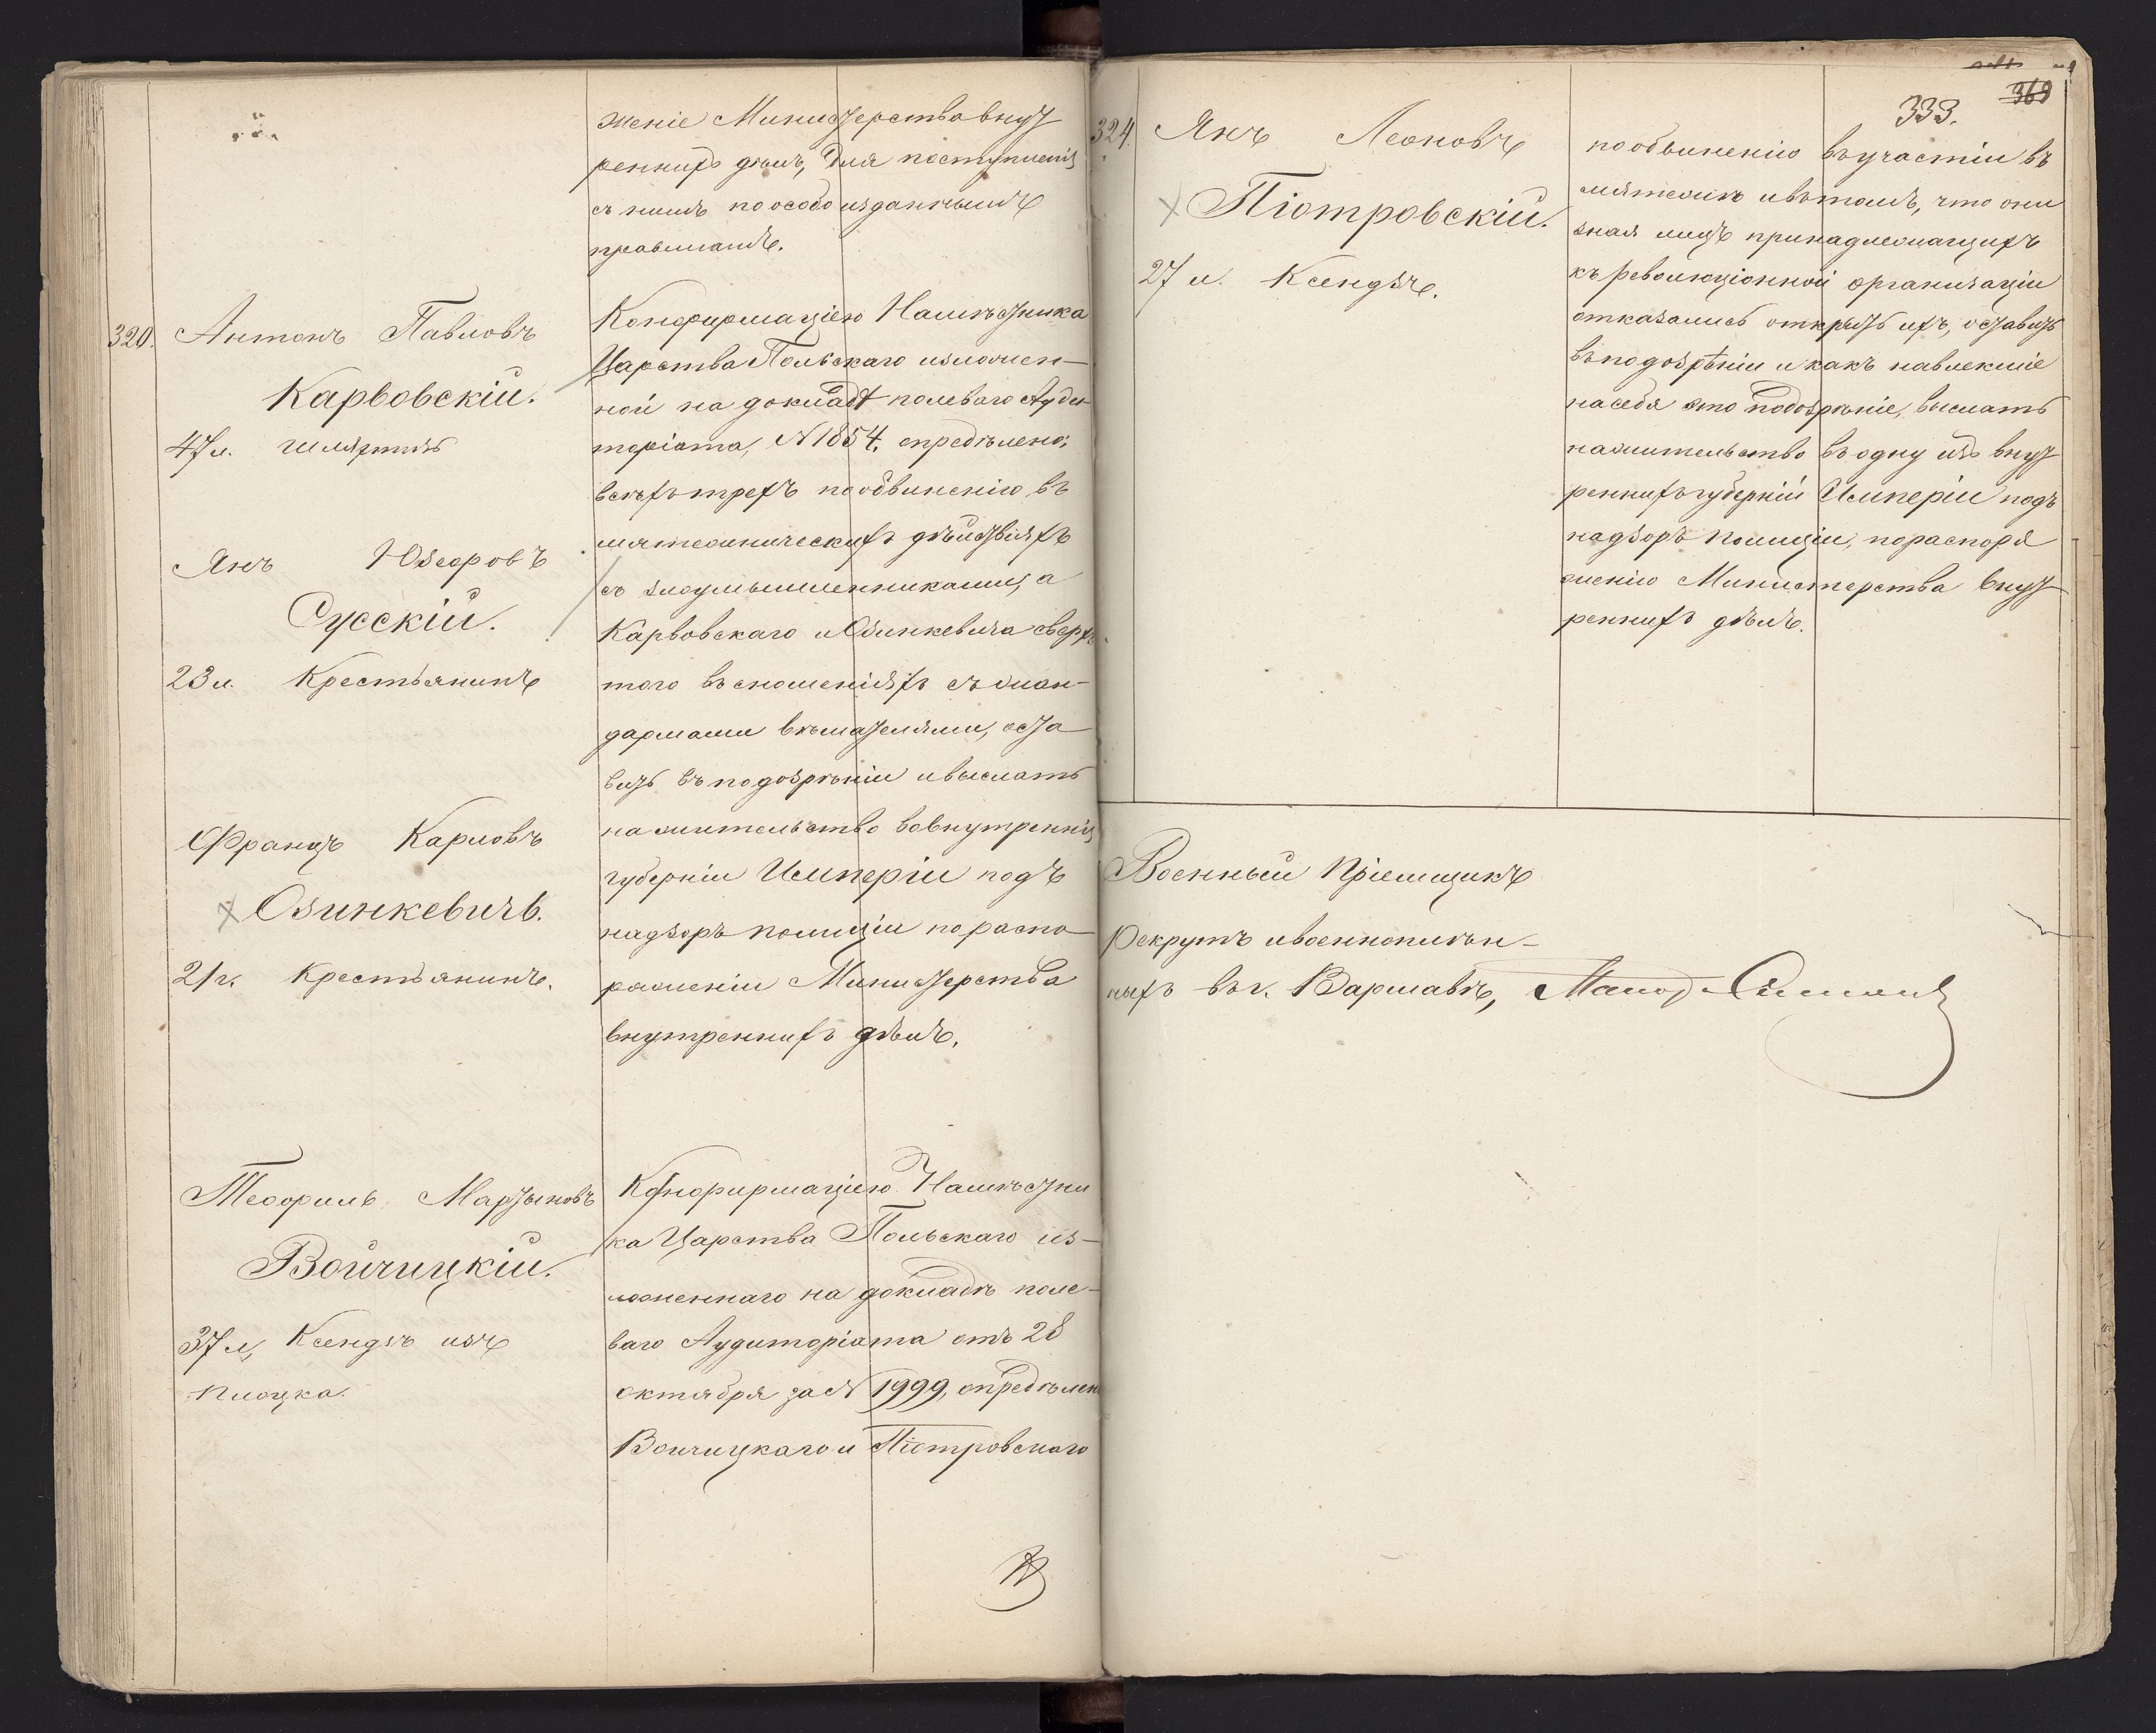 женіе Министерства внут
реннихъ дѣлъ, для поступленія
съ нимъ по особо изданнымъ
правиламъ.
320. Антонъ Павловъ
Карвовскій.
47 л. шляхтичъ
Янъ Юзефовъ
Сусскій.
23 л. Крестьянинъ
Францъ Карловъ
Озинкевичъ.
21 г. Крестьянинъ.
Конфирмаціею Намѣстника
Царства Польскаго изложен-
ной на докладѣ полеваго Ауди
торіата, № 1854, опредѣлено:
всѣхъ трехъ по обвиненію въ
мятежническихъ дѣйствіяхъ
съ злоумышленниками, а
Карвовскаго и Озинкевича сверхъ
того въ сношеніяхъ съ жан-
дармами вѣшателями, оста
вить въ подозрѣніи и выслать
на жительство во внутреннія
губерніи Имперіи подъ
надзоръ полиціи по распо
ряженіи Министерства
внутреннихъ дѣлъ.
Теофилъ Мартыновъ
Войчицкій.
37 л, Ксендзъ изъ
Плоцка.
Конфирмаціею Намѣстни
ка Царства Польскаго из-
ложеннаго на докладѣ поле-
ваго Аудиторіата отъ 28
октября за № 1999, опредѣлен
Войчицкаго и Піотровскаго
333. 369
324. Янъ Леоновъ
Піотровскій.
27 л. Ксендзъ.
по обвиненію въ участіи въ
мятежѣ и въ томъ, что они
зная лицъ принадлежащихъ
къ революціонной организаціи
отказались открыть ихъ, оставить
въ подозрѣніи и какъ навлекшіе
на себя это подозрѣніе, выслать
на жительство въ одну изъ внут
реннихъ губерній Имперіи подъ
надзоръ полиціи, по распоря
женію Министерства внут
реннихъ дѣлъ.
Военный Пріемщикъ
Рекрутъ и военноплѣн-
ныхъ въ г. Варшавѣ,